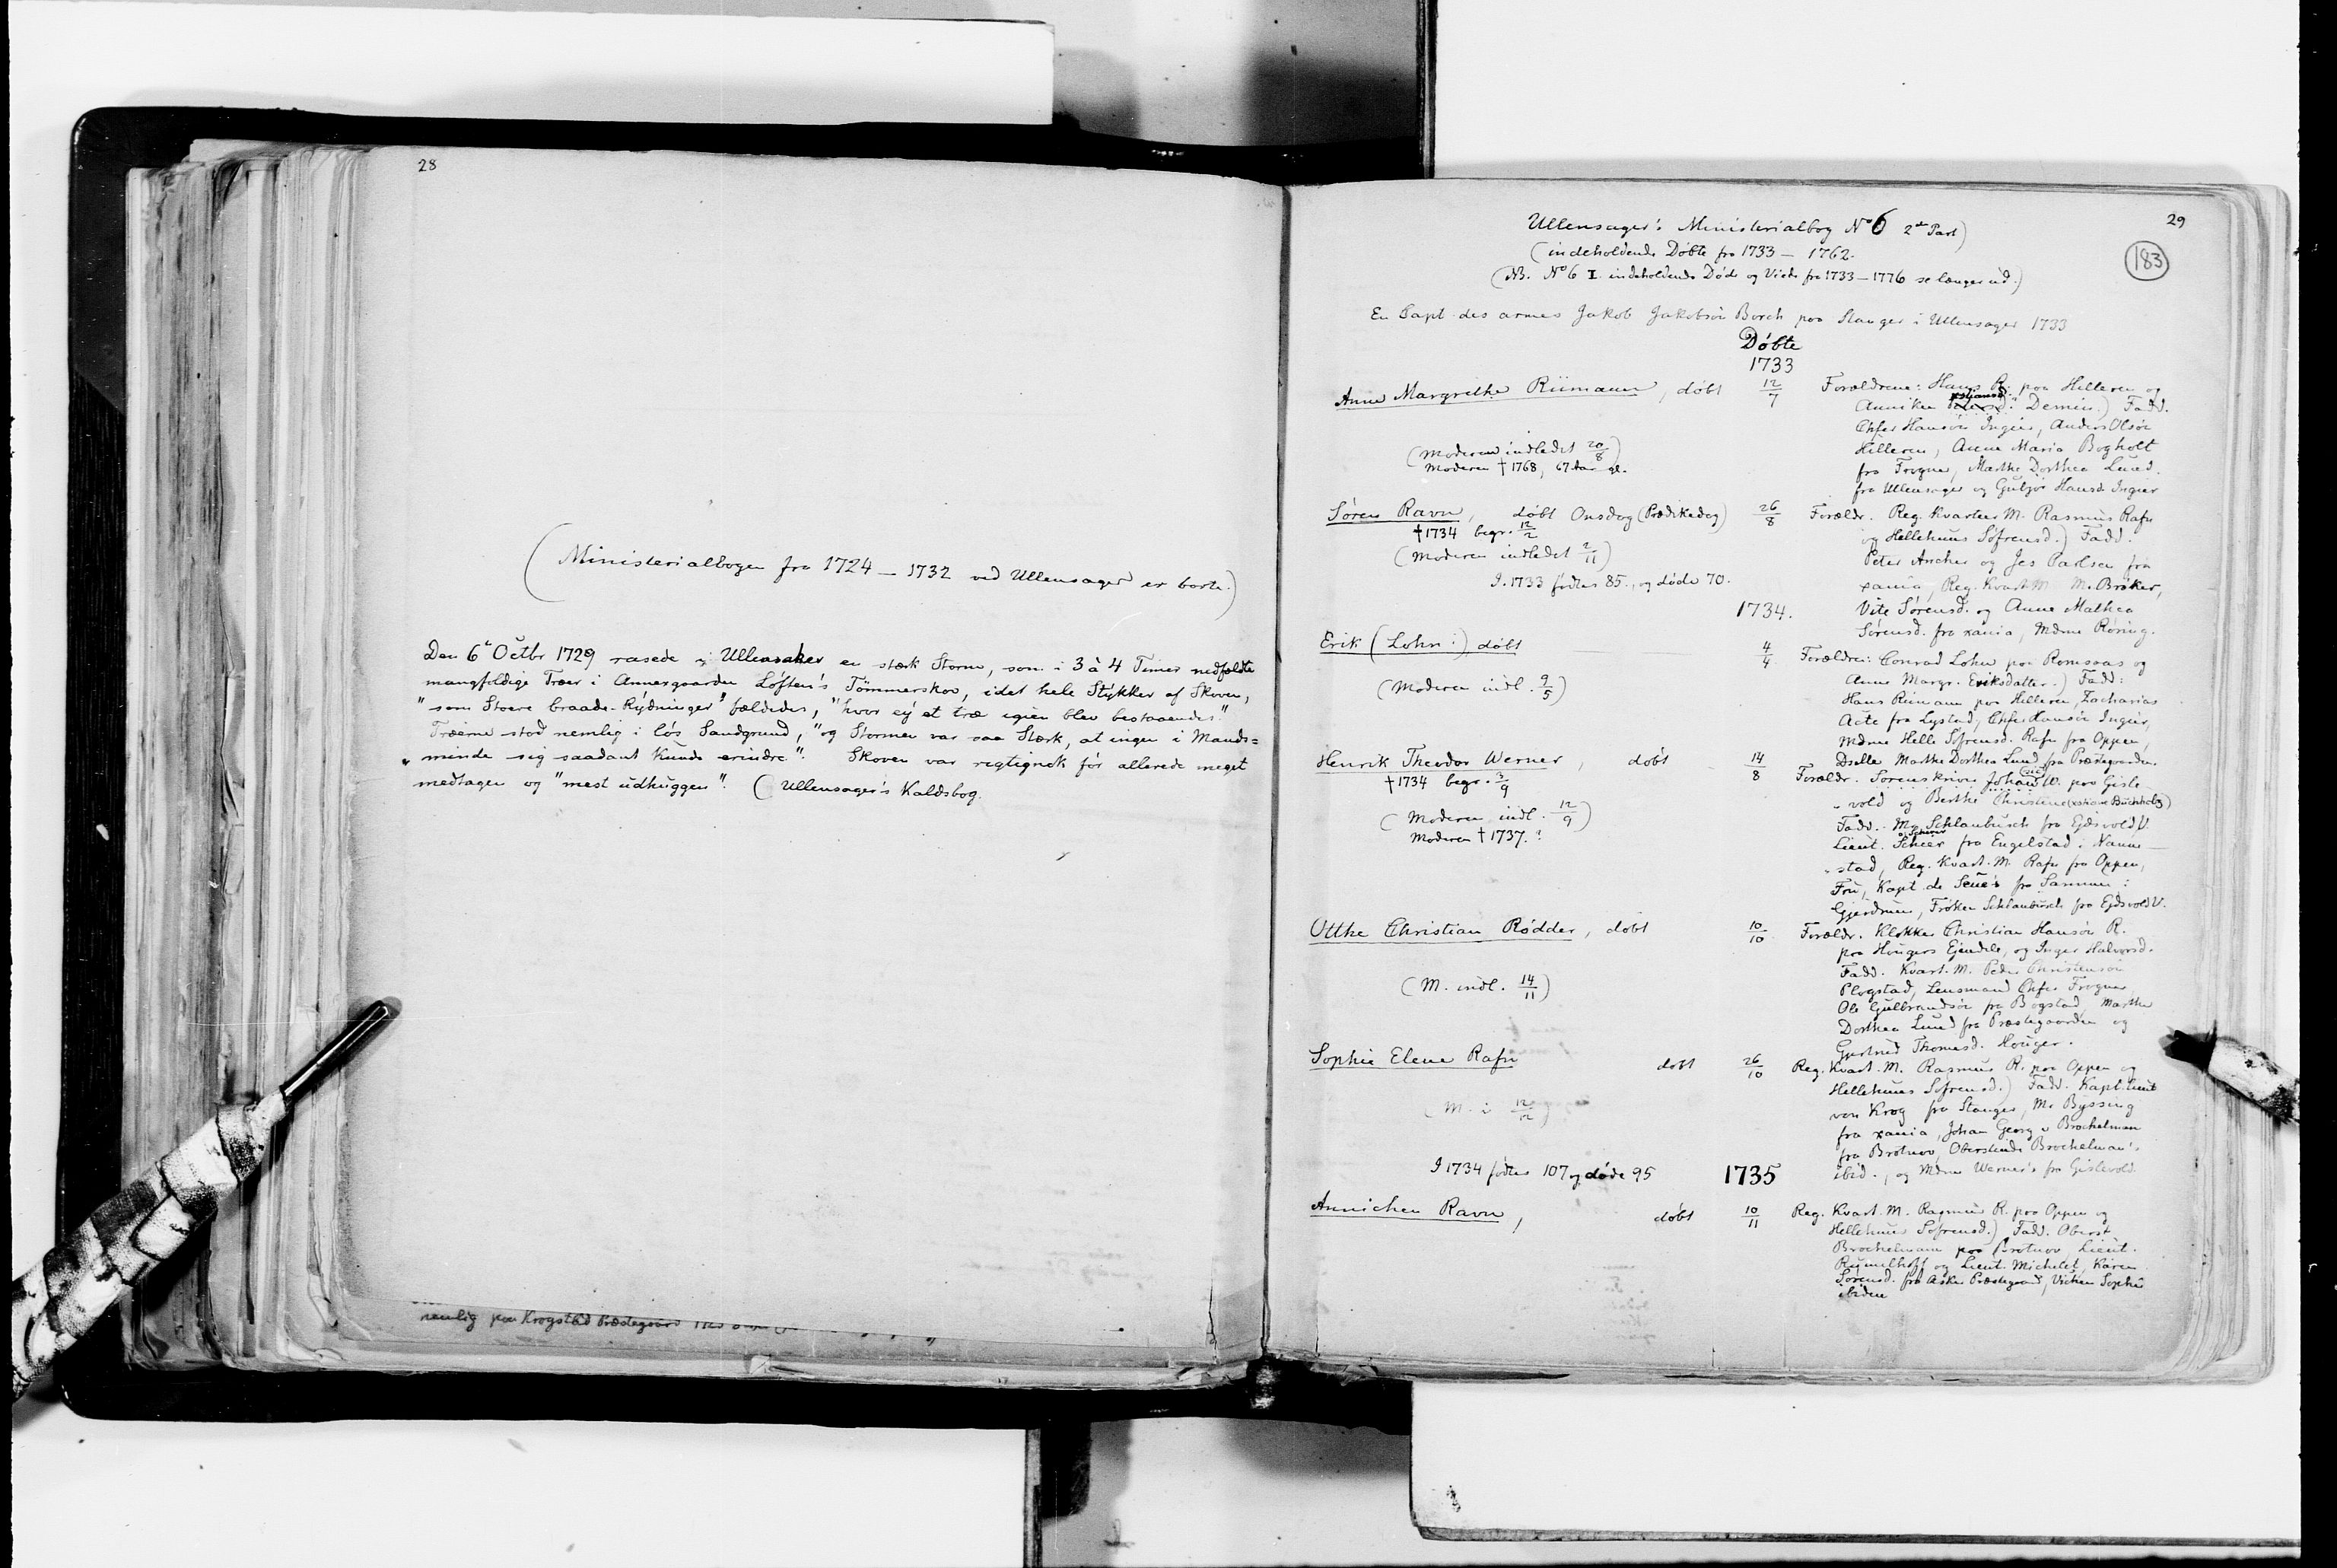 28
(Ministerialbogen fra 1724 — 1732 ved Ullensager er borte.)
Den 6te Octbr 1729 rasede i Ullensaker en stærk Storm, som i 3 à 4 Timer nedfældte
mangfoldige Træer i Annexgaarden Løften's Tömmerskov, idet hele Stykker af Skoven,
"som Stoere braade-Rydninger" fældedes, "hvor ey et træ igien blev bestaaendes".
Træerne stod nemlig i løs Sandgrund, "og Stormen var saa Stærk, at ingen i Mands=
"minde sig saadant Kunde erindre". Skoven var rigtignok før allerede meget
medtagen og "mest udhuggen". (Ullensager's Kaldsbog.
nemlig paa Krogstad Præstegaard
29
183
Ullensager's Ministerialbog No 6 2den Part)
(indeholdende Døbte fra 1733 — 1762.
(NB. No 6 I. indeholdende Døde og Viede fra 1733—1776 se længer ud.)
En Capt. des armes Jakob Jakobsön Borch paa Stanger i Ullensager 1733
Døbte
1733
Anne Margrethe Riimann, døbt 12/7 Forældrene: Hans R. paa Hilleren og
Anniken Demin.) Fadd.
Chfer Hansön Ingier, Anders Olsön
Hilleren, Anne Maria Bogholt
(Moderen indledet 20/8)
Moderen † 1768, 67 Aar gl.
fra Frogner, Marthe Dorthea Lund
fra Ullensager og Gubjør Hansd. Ingier
Søren Ravn, døbt Onsdag (Prædikedag) 26/8 Forældr. Reg. Kvarteer M. Rasmus Rafn
† 1734 begr. 12/2
og Hellehuus Söfrensd.) Fadd.
(Moderen indledet 2/11)
Peter Ancher og Jes Carlsen fra
I. 1733 fødtes 85., og døde 70.
xania, Reg. Kvart. M. M. Bröker,
1734.
Vite Sørensd. og Anne Mathea
Sørensd. fra xania, Mdme Røring.
Erik (Lohn:) døbt 4/4 Forældre: Conrad Lohn paa Romsaas og
Anne Margr. Eriksdatter.) Fadd:
(Moderen indl. 9/5)
Hans Riimann paa Hilleren, Zacharias
Acte fra Lystad, Chfer Hansön Ingier,
Mdme Helle Söfrensd. Rafn fra Oppen,
Dselle Marthe Dorthea Lund fra Præstegaarden.
Henrik Theodor Werner, døbt 14/8 Forældr. Sorenskriver Johan W. paa Gisle
† 1734 begr. 3/9
-vold og Berthe Christine (xstiane Buchholz)
(Moderen indl. 12/9)
Moderen † 1737.?
Fadd. Mr. Schlanbusch fra Ejdsvold V.
Lieut. Scheer fra Engelstad i Nanne—
-stad, Reg. Kvart. M. Rafn fra Oppen,
Fru, Kapt. de Seue's fra i
Gjerdrum, Frøken Schlanbusch fra Ejdsvold V.
Otthe Christian Rødder, døbt 10/10 Forældr. Klokker Christian Hansön R.
paa Hougers Ejendele, og Inger Halvorsd.
Fadd. Kvart. M. Peder Christensön
(M. indl. 14/11)
Plogstad, Lensmand Chfer Frogner,
Ole Gulbrandsön paa Bogstad, Marthe
Dorthea Lund fra Præstegaarden og
Gjertrud Thomesd. Houger.
Sophie Elene Rafn døbt 26/10 Reg. Kvart. M. Rasmus R. paa Oppen og
Hellehuus Sofrensd.) Fadd. Kapt. Lieut
(M. i 12/12)
von Krog fra Stanger, Mr Byssing
fra xania, Johan Georg v Brochelman
fra Brotnov, Oberstinde Brochelman's
I 1734 fødtes 107 og døde 95
ibid., og Mdme Werner's fra Gislevold.
1735
Annichen Ravn, døbt 10/11 Reg. Kvart. M. Rasmus R. paa Oppen og
Hellehuus Sofrensd.) Fadd. Oberst
Brochelmann paa Brotnov, Lieut.
Rumelhoff og Lieut. Michelet, Karen
Sørensd. fra Asker Præstegaard, Vicken Sophie
ibidem